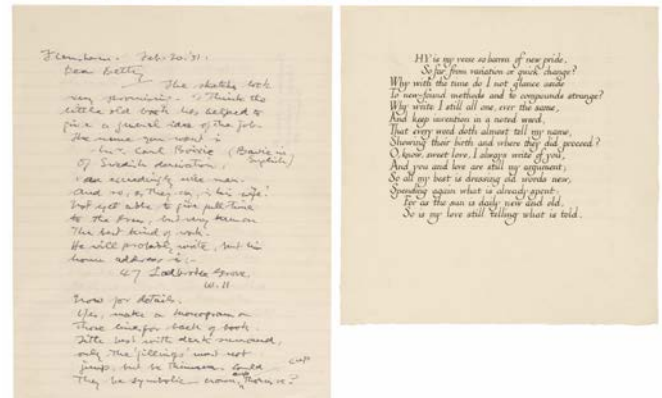 Feb. 20. '31.
Dear Betty
The sketches look
very promising. I think the
little old book has helped to
give a general idea of the job.
The name you want is
Mr. Carl
Of Swedish derivation.
an exceedingly nice man.
and so, is his wife.
Not yet able to give full time
to the but very keen on
The best kind of work.
He will probably write, but his
home address is :-
47 Ladbroke Grove,
W. 11
Now for details.
Yes, make a monogram on
those lines for back of book.
Title best with dark surround,
only the 'fillings' must not
jump, but be
They be symbolic - crown, thorns, ?
cup
HY is my verse so barren of new pride,
So far from variation or quick change?
Why with the time do I not glance aside
To new-found methods and to compounds strange?
Why write I still all one, ever the same,
And keep invention in a noted weed,
That every word doth almost tell my name,
Showing their birth and where they did proceed?
O, know, sweet love, I always write of you,
And you and love are still my argument;
So all my best is dressing old words new,
Spending again what is already spent:
For as the sun is daily new and old,
So is my love still telling what is told.